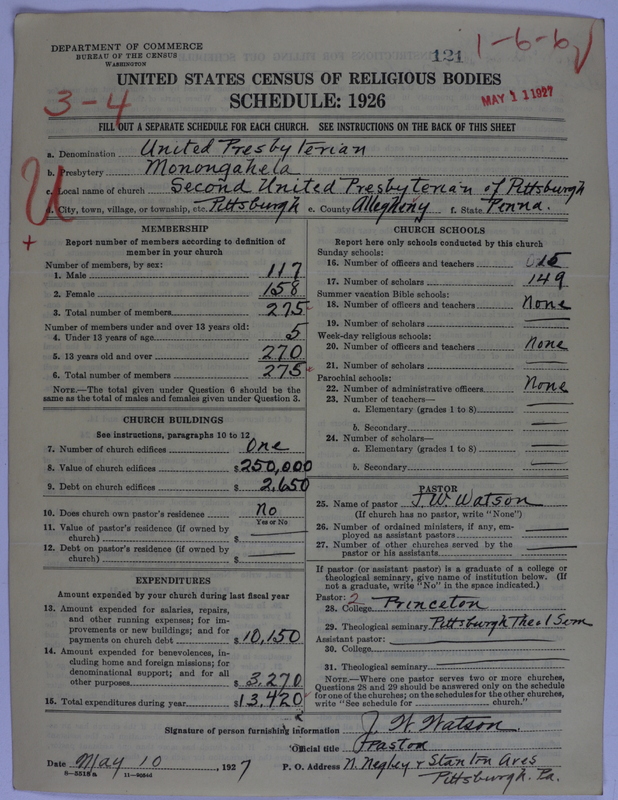 DEPARTMENT OF COMMERCE
BUREAU OF THE CENSUS
WASHINGTON
121
1-6-6
3-4
MAY 11 1927
UNITED STATES CENSUS OF RELIGIOUS BODIES
SCHEDULE: 1926
FILL OUT A SEPARATE SCHEDULE FOR EACH CHURCH. SEE INSTRUCTIONS ON THE BACK OF THIS SHEET
U
+
a. Denomination United Presbyterian
b. Presbytery Monongahela
c. Local name of church Second United Presbyterian of Pittsburgh
d. City, town, village, or township, etc. Pittsburgh e. County Allegheny f. State Penna.
MEMBERSHIP
Report number of members according to definition of
member in your church
Number of members, by sex:
1. Male 117
2. Female 158
3. Total number of members 275
Number of members under and over 13 years old:
4. Under 13 years of age 5
5. 13 years old and over 270
6. Total number of members 275
NOTE.—The total given under Question 6 should be
same as the total of males and females given under Question 3.
CHURCH BUILDINGS
See instructions, paragraphs 10 to 12
7. Number of church edifices One
8. Value of church edifices $250,000
9. Debt on church edifices $2,650
10. Does church own pastor's residence No
Yes or No
11. Value of pastor's residence (if owned by
church) $
12. Debt on pastor's residence (if owned by
church) $
EXPENDITURES
Amount expended by your church during last fiscal year
13. Amount expended for salaries, repairs,
and other running expenses; for im-
provements or new buildings; and for
payments on church debt $10,150
14. Amount expended for benevolences, in-
cluding home and foreign missions; for
denominational support; and for all
other purposes $3,270
15. Total expenditures during year $13,420
CHURCH SCHOOLS
Report here only schools conducted by this church
Sunday schools:
16. Number of officers and teachers
17. Number of scholars 149
Summer vacation Bible schools:
18. Number of officers and teachers None
19. Number of scholars
Week-day religious schools:
20. Number of officers and teachers None
21. Number of scholars
Parochial schools:
22. Number of administrative officers None
23. Number of teachers—
a. Elementary (grades 1 to 8)
b. Secondary
24. Number of scholars—
a. Elementary (grades 1 to 8)
b. Secondary
PASTOR
25. Name of pastor J. W. Watson
(If church has no pastor, write "None")
26. Number of ordained ministers, if any, em-
ployed as assistant pastors
27. Number of other churches served by the
pastor or his assistants
If pastor (or assistant pastor) is a graduate of a college or
theological seminary, give name of institution below. (If
not a graduate, write "No" in the space indicated.)
Pastor: 2
28. College Princeton
29. Theological seminary Pittsburgh Theol Sem
Assistant pastor:
30. College
31. Theological seminary
NOTE.—Where one pastor serves two or more churches,
Questions 28 and 29 should be answered only on the schedule
for one of the churches; on the schedules for the other churches,
write "See schedule for church."
Signature of person furnishing information J. W. Watson
Official title Pastor
Date May 10, 1927 P. O. Address N. Negley & Stanton Aves
Pittsburgh. Pa.
8-5518a 11-9254d